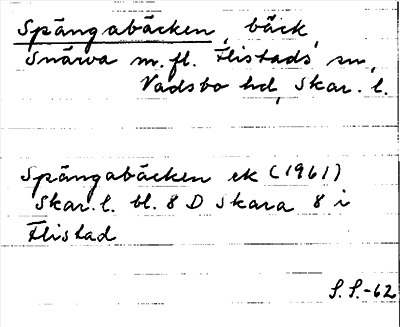 Spångabäcken, bäck,
Snårva m.fl. Flistads sn,
Vadsbo hd, Skar. l.
Spångabäcken ek (1961)
Skar. l. bl. 8 D Skara 8 i
Flistad
S.S.-62